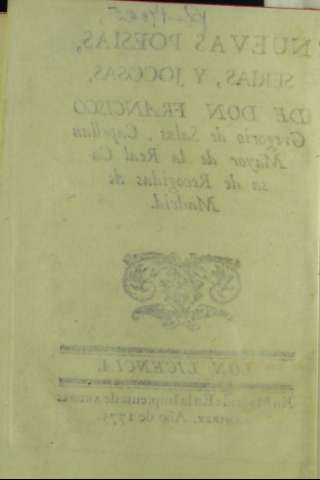 NUEVAS POESIAS,
SERIAS, Y JOCOSAS,
DE DON FRANCISCO
Gregorio de Salas, Capellan
Mayor de la Real Ca
sa de Recogidas de
Madrid.
CON LICENCIA.
En Madrid: En la Imprenta de
Año de 1775.